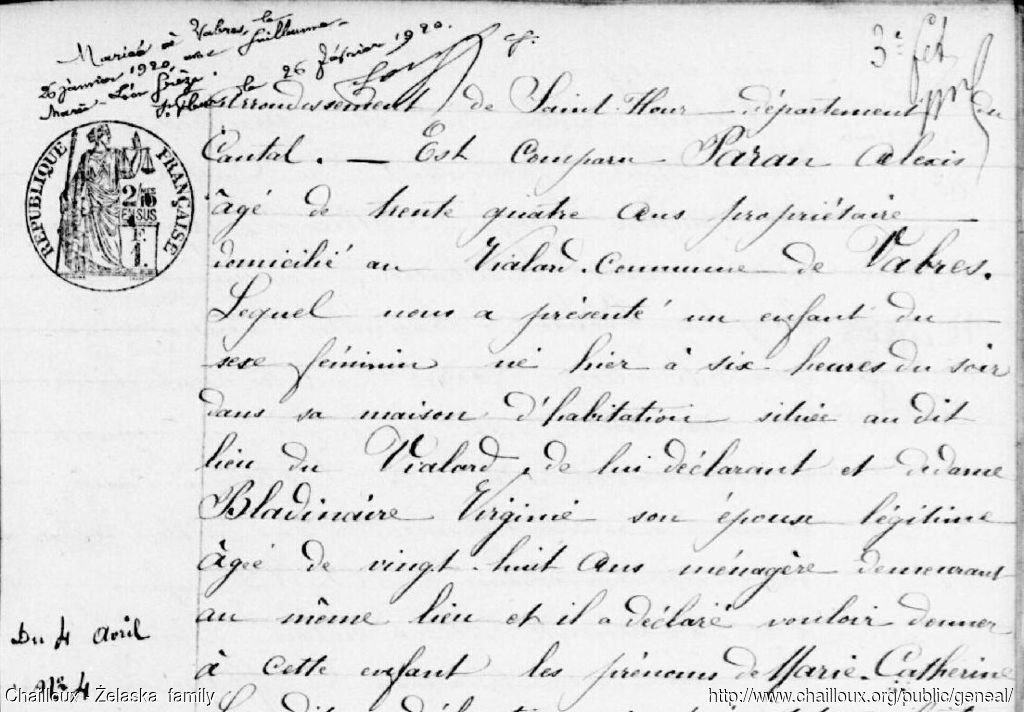 Mariée à Vabres, le
26 janvier 1920, avec Guillaume
Marie-Léon
St Flour le 26 février 1920.
RÉPUBLIQUE FRANÇAISE
2/10
EN SUS
1F
Arrondissement de Saint-Flour département du
Cantal. — Est comparu Paran Alexis
âgé de trente quatre ans propriétaire
domicilié au Vialard commune de Vabres.
Lequel nous a présenté un enfant du
sexe féminin né hier à six heures du soir
dans sa maison d'habitation située audit
lieu du Vialard, de lui déclarant et de dame
Bladinaire Virginie son épouse légitime
âgée de vingt-huit ans ménagère demeurant
au même lieu et il a déclaré vouloir donner
à cette enfant les prénoms de Marie-Catherine
Du 4 avril
N° 4
Chailloux - Żelaska family
http://www.chailloux.org/public/geneal/